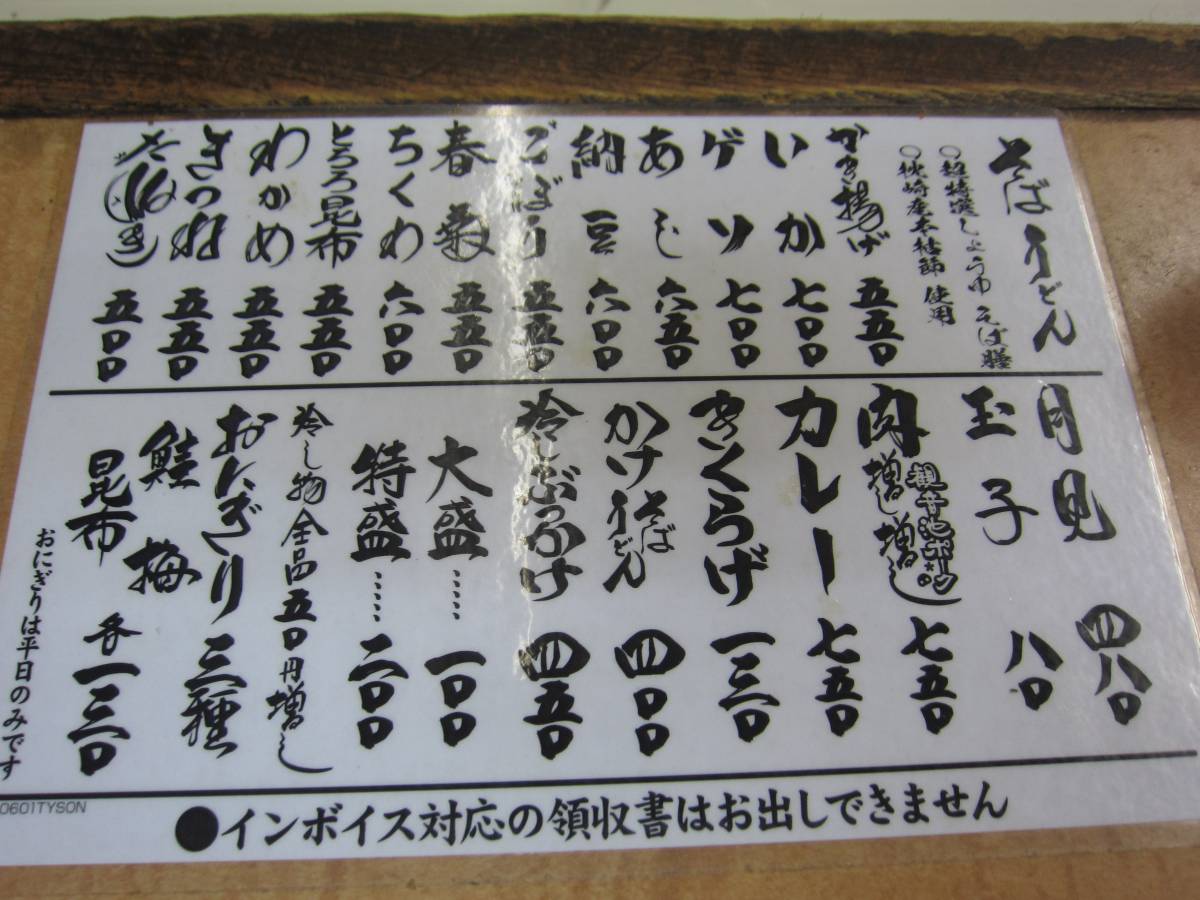 そば うどん
○超特選しょうゆ そば膳
○枕崎産本枯節 使用
かき揚げ 五五〇
いか 七〇〇
ゲソ 七〇〇
あじ 六五〇
納豆 六〇〇
ごぼう 五五〇
春菊 五五〇
ちくわ 六〇〇
とろろ昆布 五五〇
わかめ 五五〇
きつね 五五〇
たぬき 五〇〇
月見 四八〇
玉子 八〇
観音池ポーク
肉 増し増し 七五〇
カレー 七五〇
きくらげ 一三〇
かけ そば うどん 四〇〇
冷しぶっかけ 四五〇
大盛…… 一〇〇
特盛…… 二〇〇
冷し物全品五〇円増し
おにぎり 三種
鮭 梅
昆布 各一三〇
おにぎりは平日のみです
●インボイス対応の領収書はお出しできません
0601TYSON